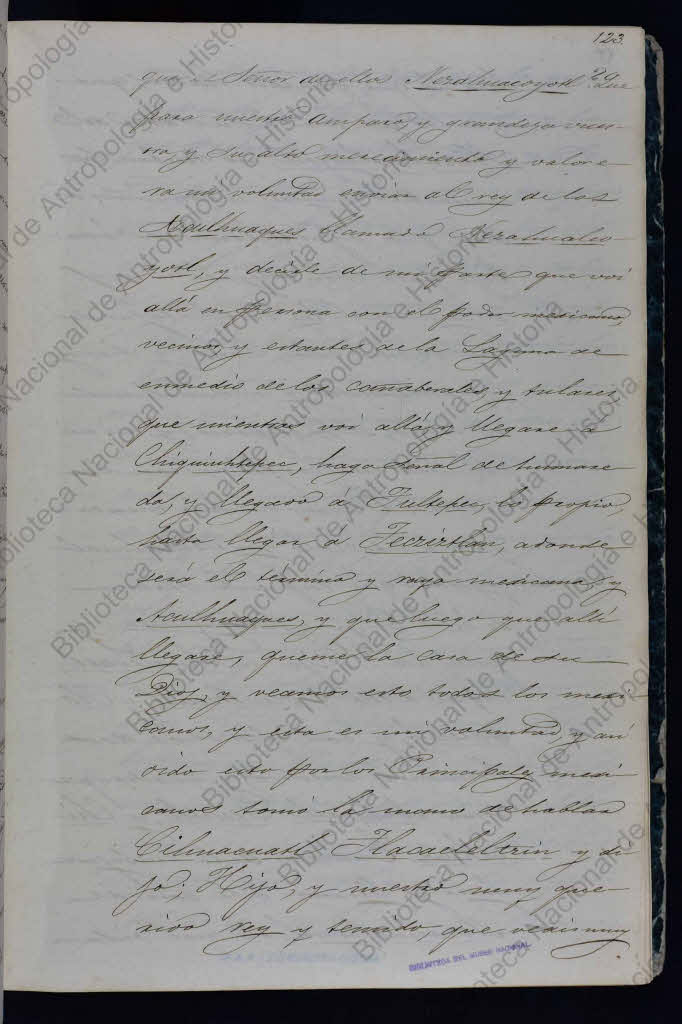 123.
que el Señor de ellos Nezahualcoyotl, que
para nuestro amparo, y grandeza vues-
tra, y su alto merecimiento y valor e
ra mi voluntad enviar al rey de los
Aculhuaques llamado Nezahualco-
yotl, y decirle de mi parte que voi
allá en persona con el poder mexicano,
vecinos y estantes de la Laguna de
enmedio de los cañaberales, y tulares
que mientras voi allá, y llegare á
Chiquiuhtepec, haga señal de humare
da, y llegado a Tultepec, lo propio,
hasta llegar á Tecziztlan, adonde
será el término y raya mexicana, y
Aculhuaques, y que luego que allí
llegare, queme la casa de su
Dios, y veamos esto todos los mexi
canos, y esta es mi voluntad, y aní
oido esto por los Principales mexi
canos tomó la mano de hablar
Cihuacuatl Tlacaeleltzin y di
jo; Hijo, y nuestro muy que-
rido rey y temido, que veais muy
BIBLIOTECA DEL MUSEO NACIONAL
Biblioteca Nacional de Antropología e Historia